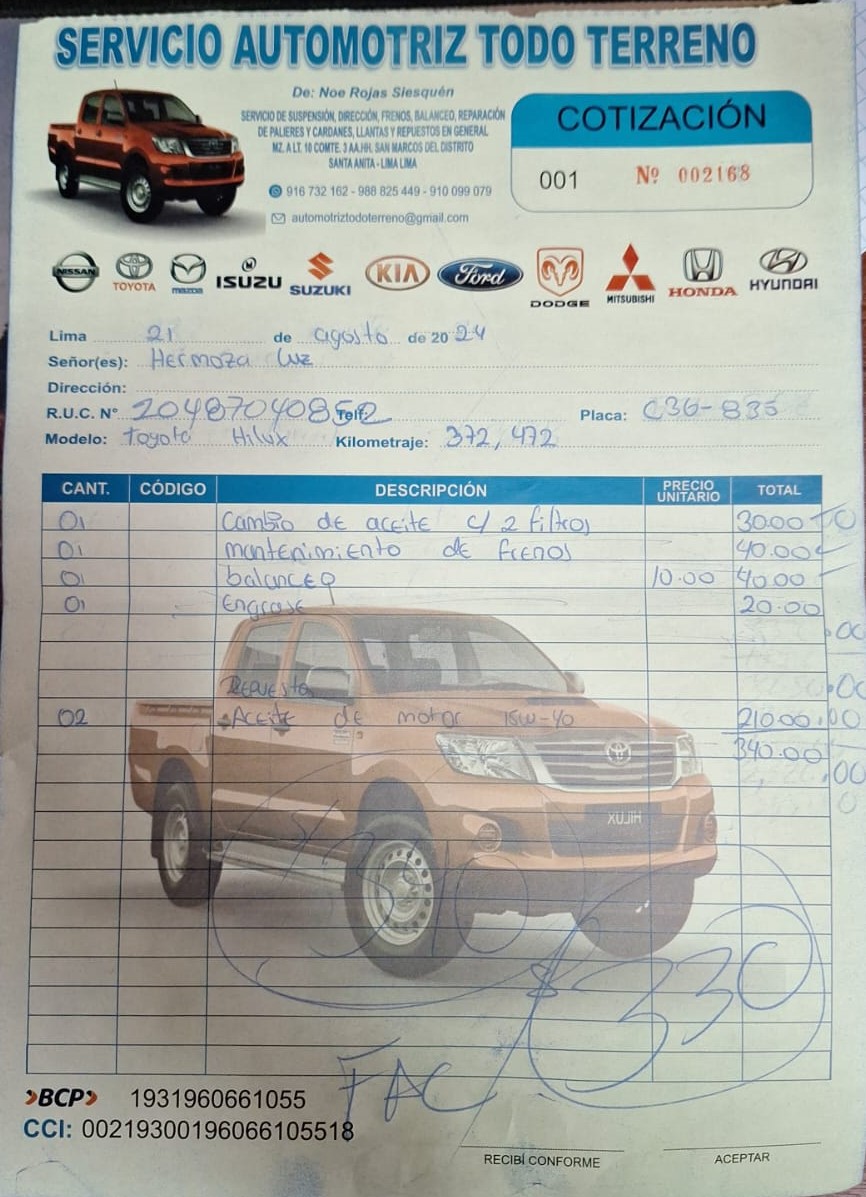 SERVICIO AUTOMOTRIZ TODO TERRENO
De: Noe Rojas Siesquén
SERVICIO DE SUSPENSIÓN, DIRECCIÓN, FRENOS, BALANCEO, REPARACIÓN
DE PALIERES Y CARDANES, LLANTAS Y REPUESTOS EN GENERAL
MZ. A LT. 10 COMTE. 3 AA.HH. SAN MARCOS DEL DISTRITO
SANTA ANITA - LIMA LIMA
916 732 162 - 988 825 449 - 910 099 079
automotriztodoterreno@gmail.com
COTIZACIÓN
001 Nº 002168
NISSAN TOYOTA mazda ISUZU SUZUKI KIA Ford DODGE MITSUBISHI HONDA HYUNDAI
Lima 21 de agosto de 2024
Señor(es): Hermoza Luz
Dirección:
R.U.C. N° 20487040852 Telf:
Placa: C36-835
Modelo: Toyota Hilux Kilometraje: 372,472
CANT. CÓDIGO DESCRIPCIÓN PRECIO UNITARIO TOTAL
01 Cambio de aceite c/2 filtros 30.00
01 mantenimiento de frenos 40.00
01 balanceo 10.00 40.00
01 Engrase 20.00
Repuestos
02 Aceite de motor 15W-40 210.00
340.00
HILUX
330
FAC
BCP 1931960661055
CCI: 00219300196066105518
RECIBÍ CONFORME ACEPTAR